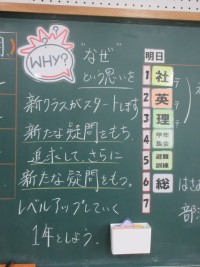 WHY?
"なぜ"
という思いを
新クラスがスタートします
新たな疑問をもち、
追求して、さらに
新たな疑問をもつ。
レベルアップしていく
1年としよう。
明日
1 社
2 英
3 理
4 学年集会
5 避難訓練
6 総
7
はさ
部